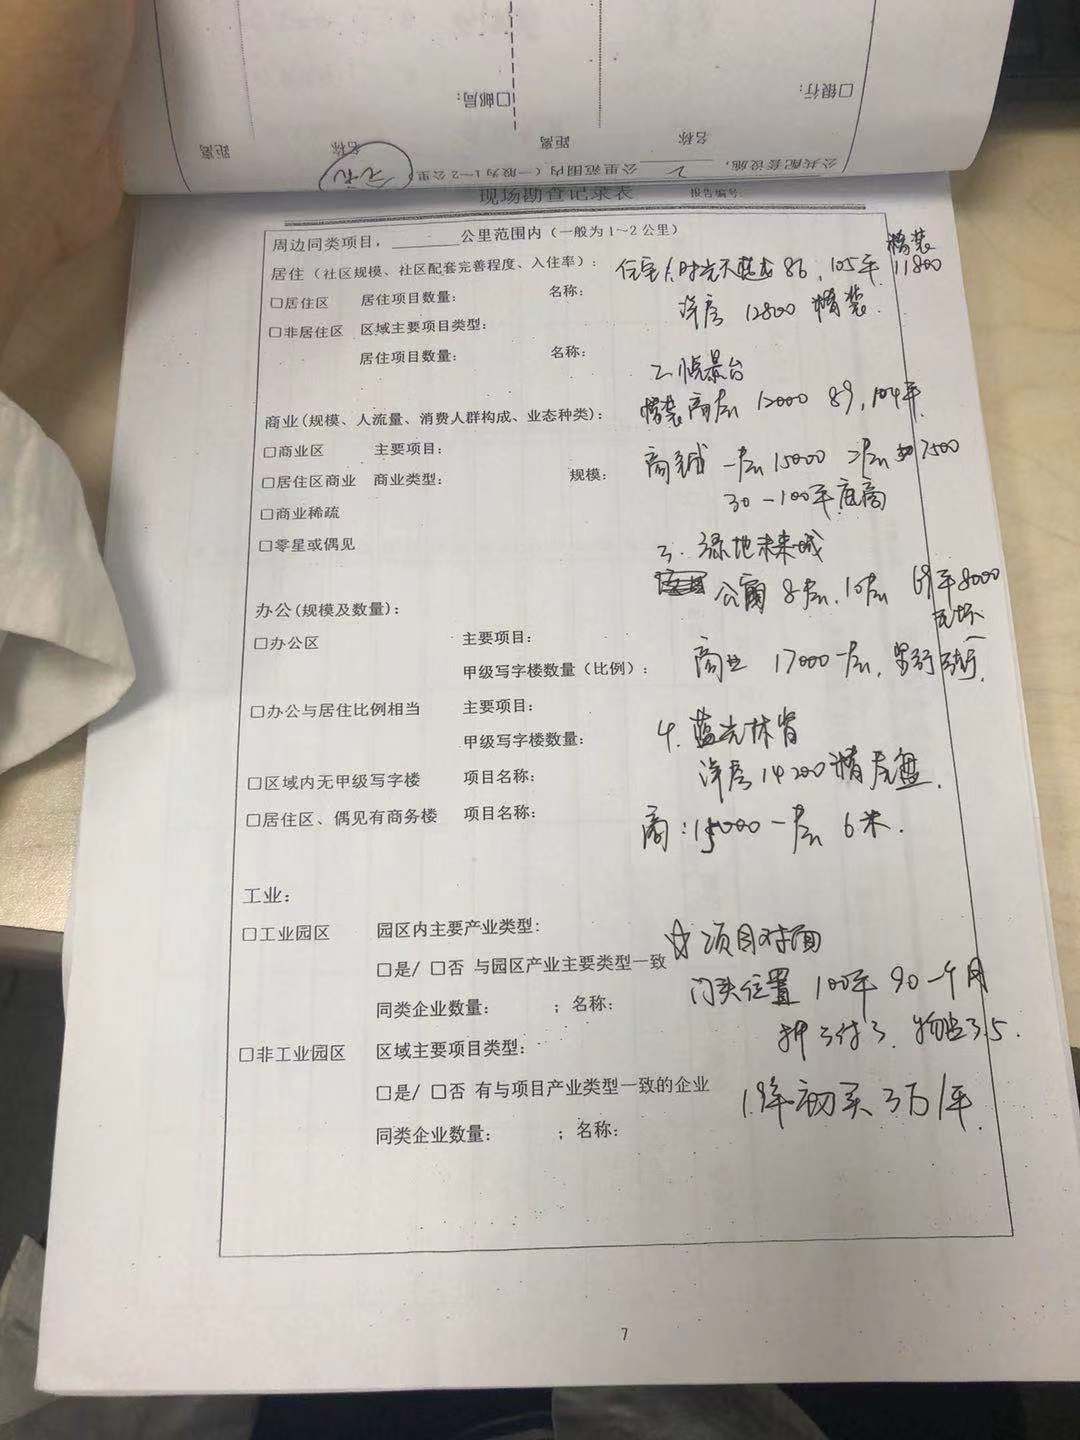 □银行:
□邮局:
名称
距离
名称
距离
公共配套设施, 2 公里范围内(一般为1~2公里)
现场勘查记录表
报告编号:
周边同类项目,______公里范围内(一般为1~2公里)
居住(社区规模、社区配套完善程度、入住率):
住宅 1.时光天 86, 105平 精装 11800
□居住区 居住项目数量: 名称:
洋房 12800 精装.
□非居住区 区域主要项目类型:
居住项目数量: 名称:
2.悦景台
商业(规模、人流量、消费人群构成、业态种类):
精装高层 12000 89, 104平.
□商业区 主要项目:
商铺 一层 15000 二层 7500
□居住区商业 商业类型: 规模:
30-100平 底商
□商业稀疏
□零星或偶见
3. 绿地未来城
公寓 8层、10层 69平 8000
毛坯
办公(规模及数量):
□办公区 主要项目:
甲级写字楼数量(比例):
商业 17000 一层,
□办公与居住比例相当 主要项目:
甲级写字楼数量:
4. 蓝光林肯
□区域内无甲级写字楼 项目名称:
洋房 14200 精 尾盘.
□居住区、偶见有商务楼 项目名称:
商: 15000 一层 6米.
工业:
□工业园区 园区内主要产业类型:
☆ 项目对面
□是/ □否 与园区产业主要类型一致
门头位置 100平 90一个月
同类企业数量: ; 名称:
押3付3. 物业3.5.
□非工业园区 区域主要项目类型:
□是/ □否 有与项目产业类型一致的企业
19年初买 3万/平.
同类企业数量: ; 名称:
7